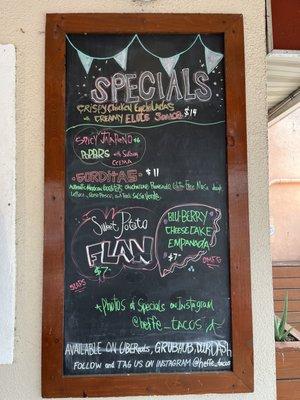 SPECIALS
CRISPY Chicken Enchiladas
w/ CREAMY ELOTE SAUCE $14
SPICY JALAPEÑO
POPPERS with Serrano
CREMA
GORDITAS $11
Authentic Mexican Homemade Gluten Free Masa
Lettuce, Queso Fresco, and Fresh Salsa Verde
Sweet Potato
FLAN
$7
BLUEBERRY
CHEESECAKE
EMPANADA
$7
OMFG
*Photos of Specials on Instagram
@heffe_tacos
AVAILABLE ON UBEReats, GRUBHUB, DOORDASH
FOLLOW and TAG US ON INSTAGRAM @heffe_tacos